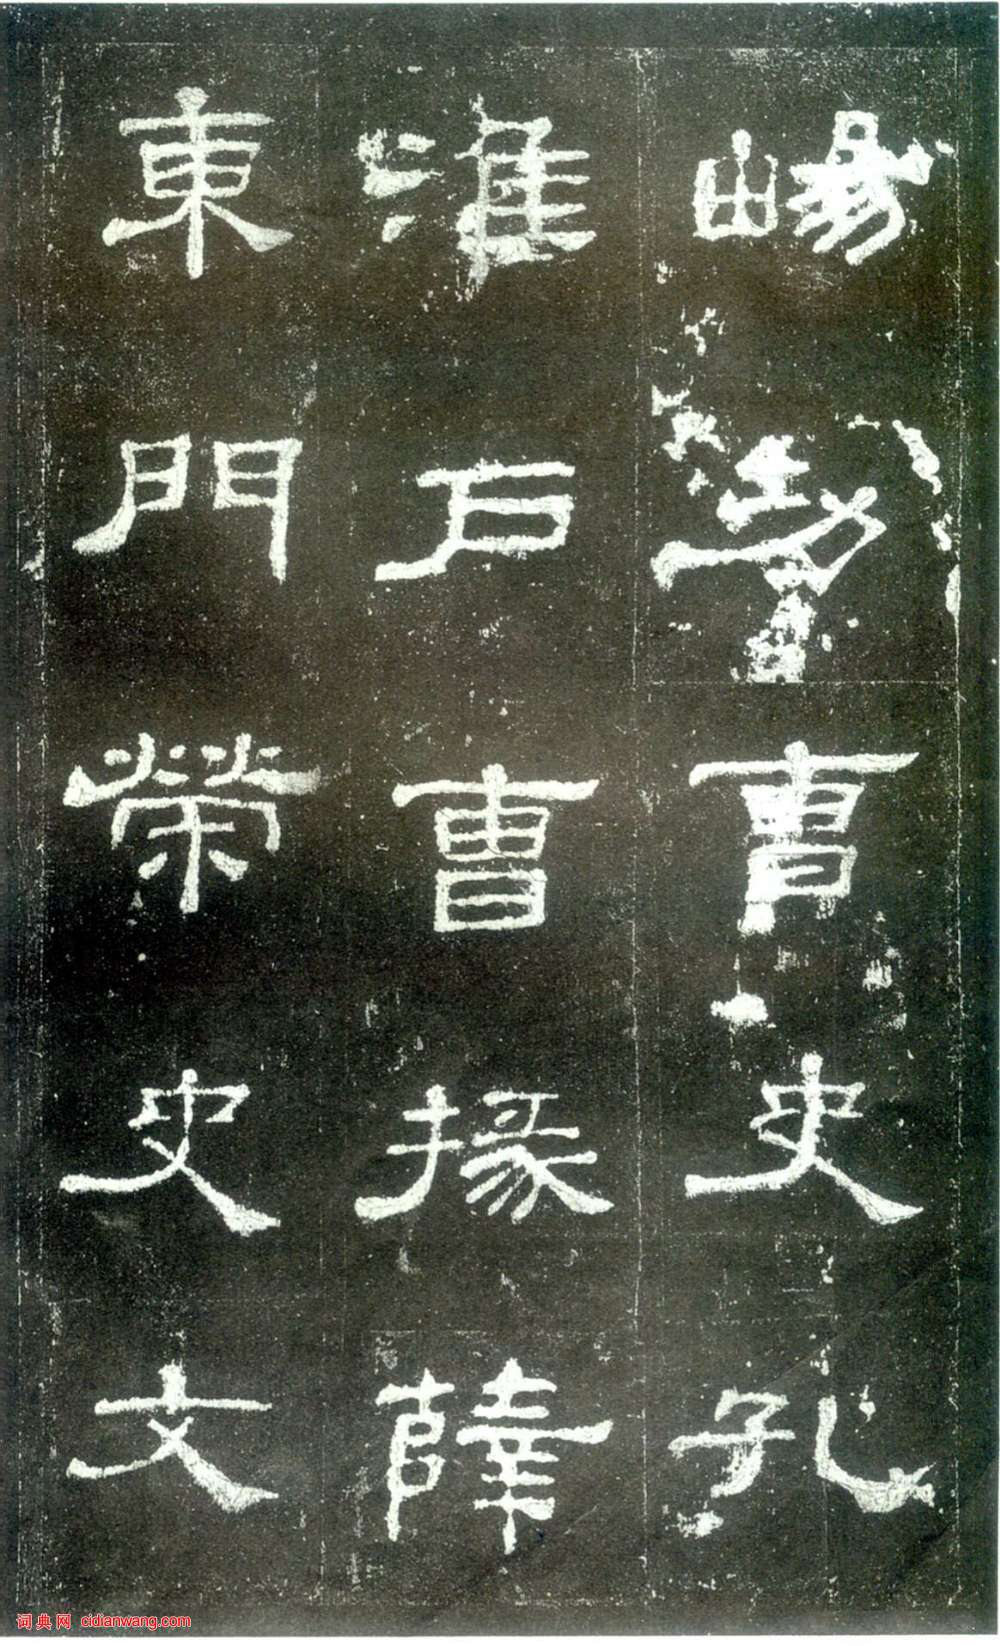 暢功曹史孔
淮戶曹掾薛
東門榮史文
词典网 cidianwang.com